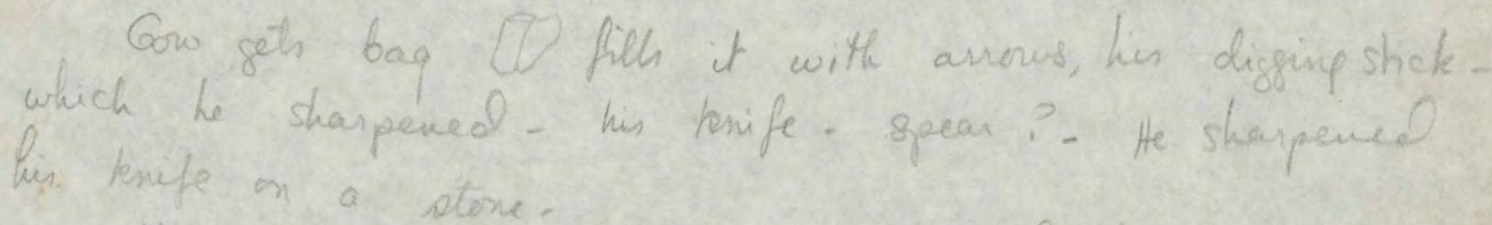 Gow gets bag fills it with arrows, his digging stick -
which he sharpened - his knife - spear? - He sharpened
his knife on a stone.